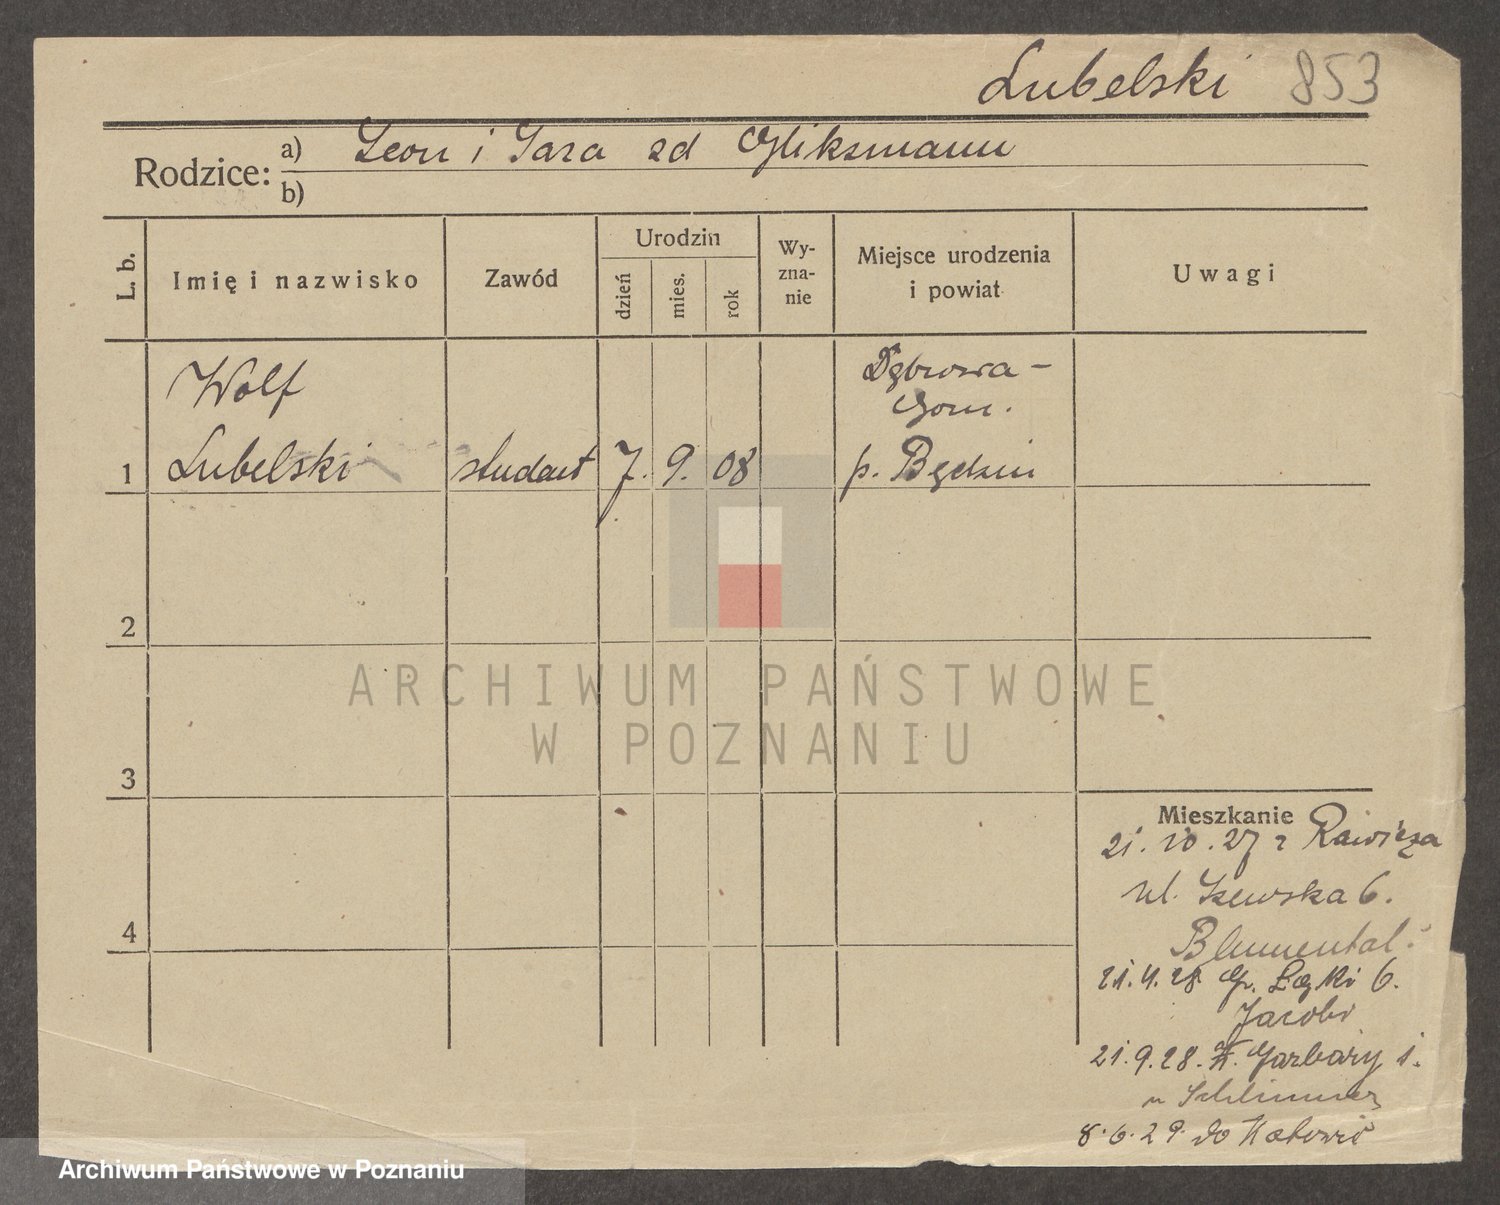 Lubelski 853
Rodzice: a) Leon i Sara zd Gliksmann
b)
L. b. Imię i nazwisko Zawód Urodzin dzień mies. rok Wy-zna-nie Miejsce urodzenia i powiat Uwagi
Wolf Dąbrowa-
Gorn.
1 Lubelski student 7. 9. 08 p. Będzin
2
3
4
Mieszkanie
21.10.27 z Rawicza
ul. Szewska 6.
Blumental.
21.4.28 Gr. Łąki 6.
Jacobi
21.9.28. W. Garbary 1.
u
8.6.29. do Katowic
ARCHIWUM PAŃSTWOWE
W POZNANIU
Archiwum Państwowe w Poznaniu